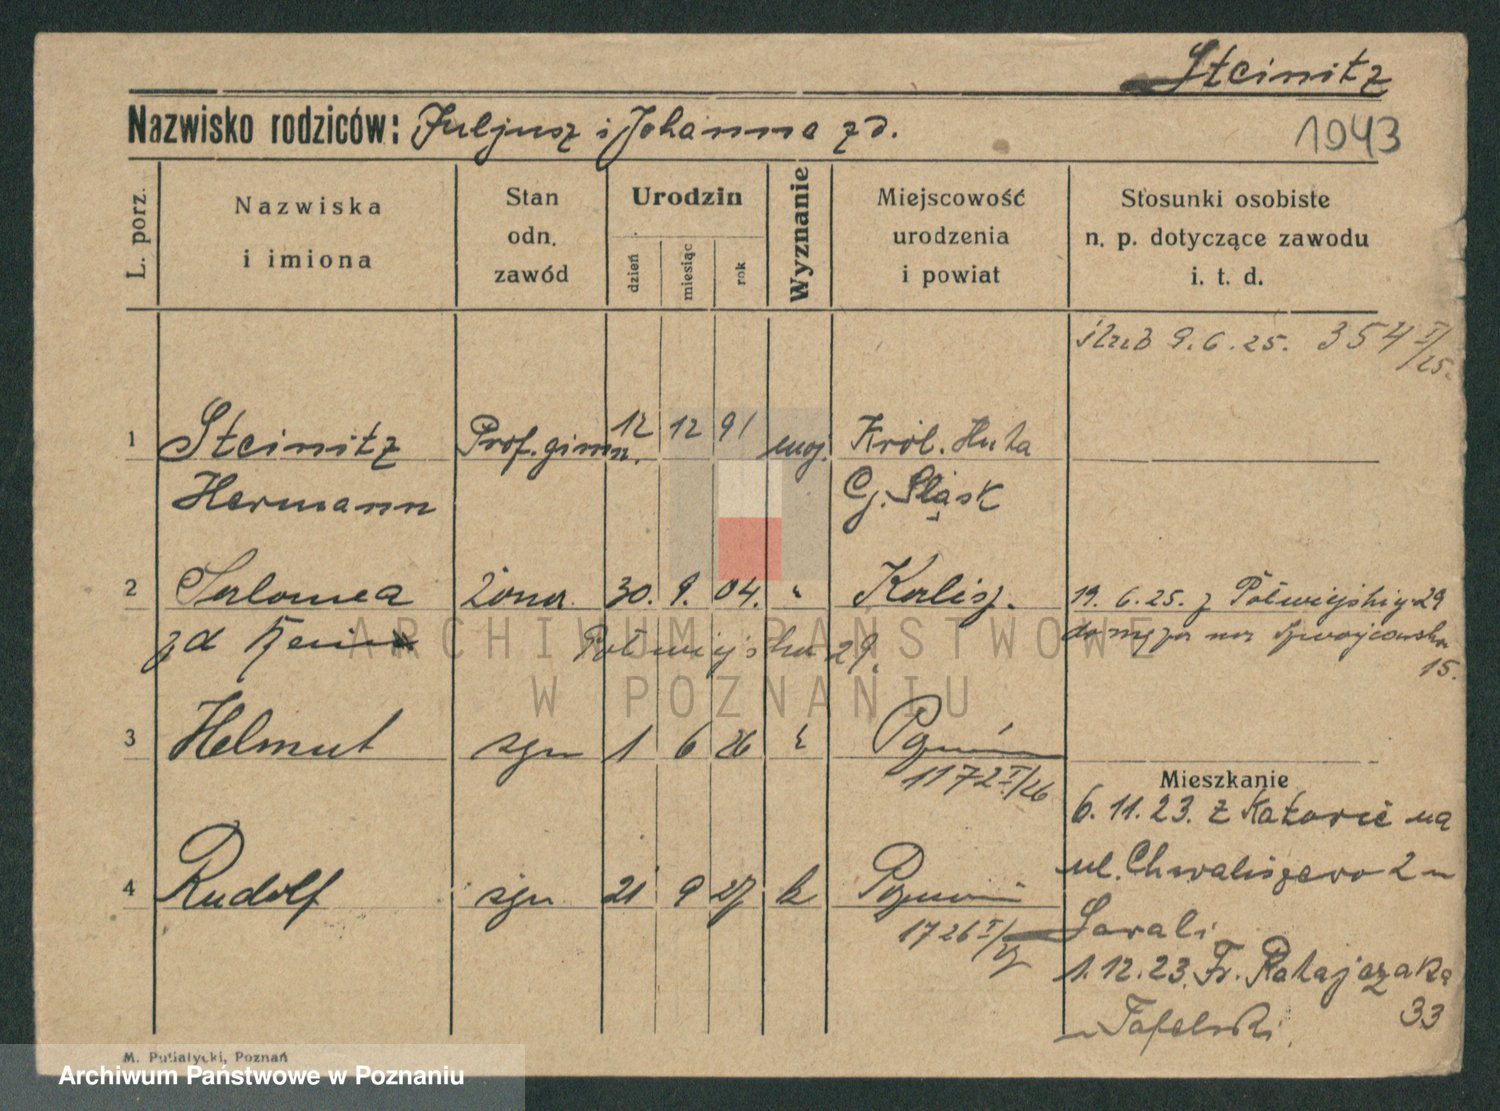 Steinitz
Nazwisko rodziców: Juljusz i Johanna zd.
1943
L. porz.
Nazwiska
i imiona
Stan
odn.
zawód
Urodzin
dzień
miesiąc
rok
Wyznanie
Miejscowość
urodzenia
i powiat
Stosunki osobiste
n. p. dotyczące zawodu
i. t. d.
9.6.25. 354 I/25.
1 Steinitz Prof. gimn. 12 12 91 moj. Król. Huta
Hermann G. Śląsk
2 Salomea żona 30. 9. 04. " Kalisz. 19. 6. 25. z Półwiejskiej 29
zd Półwiejska 29. do męża na
15.
3 Helmut syn 1 6 26 " Poznań
1172 I/26
Mieszkanie
6. 11. 23. z Katowic na
ul. Chwaliszewo 2 u
4 Rudolf syn 21 9 27 k Poznań
1726 I/27
Sarali
1.12.23. Fr. Ratajczaka
33
u Tafelski
M. Putiatycki, Poznań
Archiwum Państwowe w Poznaniu
ARCHIWUM PAŃSTWOWE
W POZNANIU